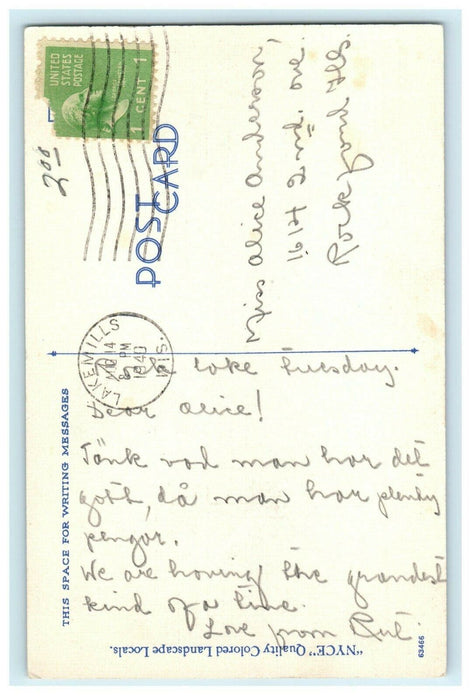 UNITED
STATES
POSTAGE
1 CENT 1
2 00
POST
CARD
Miss Alice Anderson
1614 2nd. ave.
Rockford Ills.
LAKE MILLS
14
8 PM
1940
WIS.
lake Tuesday.
Dear Alice!
Tänk vad man har det
gott, då man har plenty
pengar.
We are having the grandest
kind of a time.
Love from Rut.
THIS SPACE FOR WRITING MESSAGES
"NYCE" Quality Colored Landscape Locals.
63466